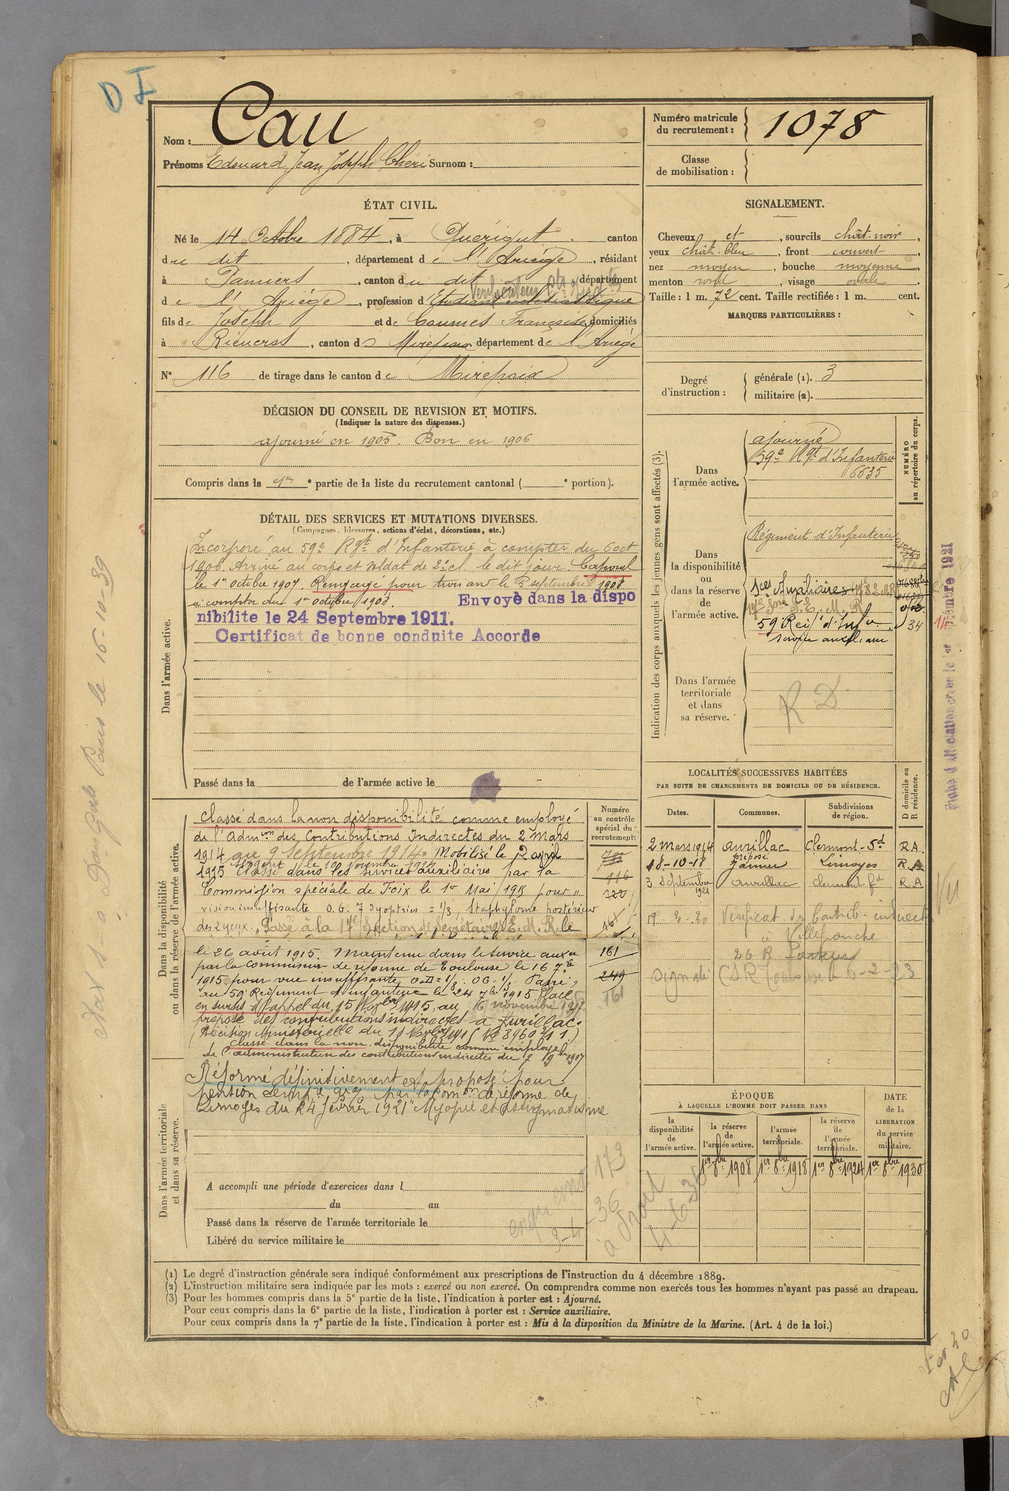 D I
Nom : Cau
Prénoms : Edouard, Jean, Joseph, Chéri Surnom :
Numéro matricule du recrutement : 1078
Classe de mobilisation :
ÉTAT CIVIL.
Né le 14 Octobre 1884, à Quérigut canton
du dit, département de l'Ariège, résidant
à Pamiers, canton du dit département
de l'Ariège, profession d Etudiant ecclésiastique
fils de Joseph et de Caumes Françoise, domiciliés
à Rieucros, canton de Mirepoix département de l'Ariège
N° 116 de tirage dans le canton de Mirepoix
SIGNALEMENT.
Cheveux et, sourcils chât-noir,
yeux chât. bleu, front couvert,
nez moyen, bouche moyenne,
menton rond, visage ovale.
Taille : 1 m. 72 cent. Taille rectifiée : 1 m. cent.
MARQUES PARTICULIÈRES :
Degré d'instruction : générale (1). 3
militaire (2).
DÉCISION DU CONSEIL DE REVISION ET MOTIFS.
(Indiquer la nature des dispenses.)
ajourné en 1905 Bon en 1906
Compris dans la 1re partie de la liste du recrutement cantonal ( e portion).
DÉTAIL DES SERVICES ET MUTATIONS DIVERSES.
(Campagnes, blessures, actions d'éclat, décorations, etc.)
Dans l'armée active.
Incorporé au 59e Rgt d'Infanterie à compter du 6 oct
1906. Arrivé au corps et soldat de 2e cl. le dit jour Caporal
le 1er octobre 1907. Rengagé pour trois ans le septembre 1908
à compter du 1er octobre 1908. Envoyé dans la dispo
nibilite le 24 Septembre 1911.
Certificat de bonne conduite Accorde
Passé dans la de l'armée active le
Indication des corps auxquels les jeunes gens sont affectés (3).
NUMÉRO au répertoire du corps.
Dans l'armée active.
ajourné
59e Rgt d'Infanterie
6635
Dans la disponibilité ou dans la réserve de l'armée active.
Régiment d'Infanterie
Ses Auxiliaires
59 Rei/t d'Infie
service auxiliaire
34
Dans l'armée territoriale et dans sa réserve.
R D
Dans la disponibilité ou dans la réserve de l'armée active.
Classé dans la non disponibilité comme employé
de l'Admon des Contributions Indirectes du 2 Mars
1914 au 9 Septembre 1914. Mobilisé le 2 avril
1915 Classé dans les services auxiliaires par la
Commission spéciale de Foix le 1er Mai 1915 pour
vision insuffisante O.G. 7 dyoptries = 1/3, Staphylome postérieur
des 2 yeux. Passé à la 17e Section de Secrétaires E.M.R. le
le 26 août 1915. Maintenu dans le service auxre
par la commission de réforme de Toulouse le 16 7bre
1915 pour vue insuffisante Passé
au 59 Régiment d'infanterie le 24 7b 1915 Placé
en sursis d'appel du 15 Novbre 1915 au novembre
préposé des contributions indirectes à Aurillac
(Décision Ministérielle du 11 Novbre 1915 (N° 8960 2/11)
Classé dans la non disponibilité comme employé
de l'administration des contributions indirectes du 2 9bre 1917
Réformé définitivement et proposé pour
pension par la Comon de réforme de
Limoges du 24 février 1921 "Myopie et astigmatisme
Numéro au contrôle spécial du recrutement.
161
249
161
LOCALITÉS SUCCESSIVES HABITÉES
PAR SUITE DE CHANGEMENTS DE DOMICILE OU DE RÉSIDENCE.
Dates. Communes. Subdivisions de région. D domicile ou R résidence.
2 mars 1914 Aurillac Clermont-Fd R A.
18-10-18 Limoges R A
3 Septembre 1921 Aurillac Clermont Fd R A
19. 3. 30 Vérificat. des Contrib. indirect
à Villefranche
Dans l'armée territoriale et dans sa réserve.
A accompli une période d'exercices dans l
du au
Passé dans la réserve de l'armée territoriale le
Libéré du service militaire le
ÉPOQUE
À LAQUELLE L'HOMME DOIT PASSER DANS
la disponibilité de l'armée active.
la réserve de l'armée active. 1er 8bre 1908
l'armée territoriale. 1er 8bre 1918
la réserve de l'armée territoriale. 1er 8bre 1924
DATE de la LIBÉRATION du service militaire. 1er 8bre 1930
(1) Le degré d'instruction générale sera indiqué conformément aux prescriptions de l'instruction du 4 décembre 1889.
(2) L'instruction militaire sera indiquée par les mots : exercé ou non exercé. On comprendra comme non exercés tous les hommes n'ayant pas passé au drapeau.
(3) Pour les hommes compris dans la 5e partie de la liste, l'indication à porter est : Ajourné.
Pour ceux compris dans la 6e partie de la liste, l'indication à porter est : Service auxiliaire.
Pour ceux compris dans la 7e partie de la liste, l'indication à porter est : Mis à la disposition du Ministre de la Marine. (Art. 4 de la loi.)